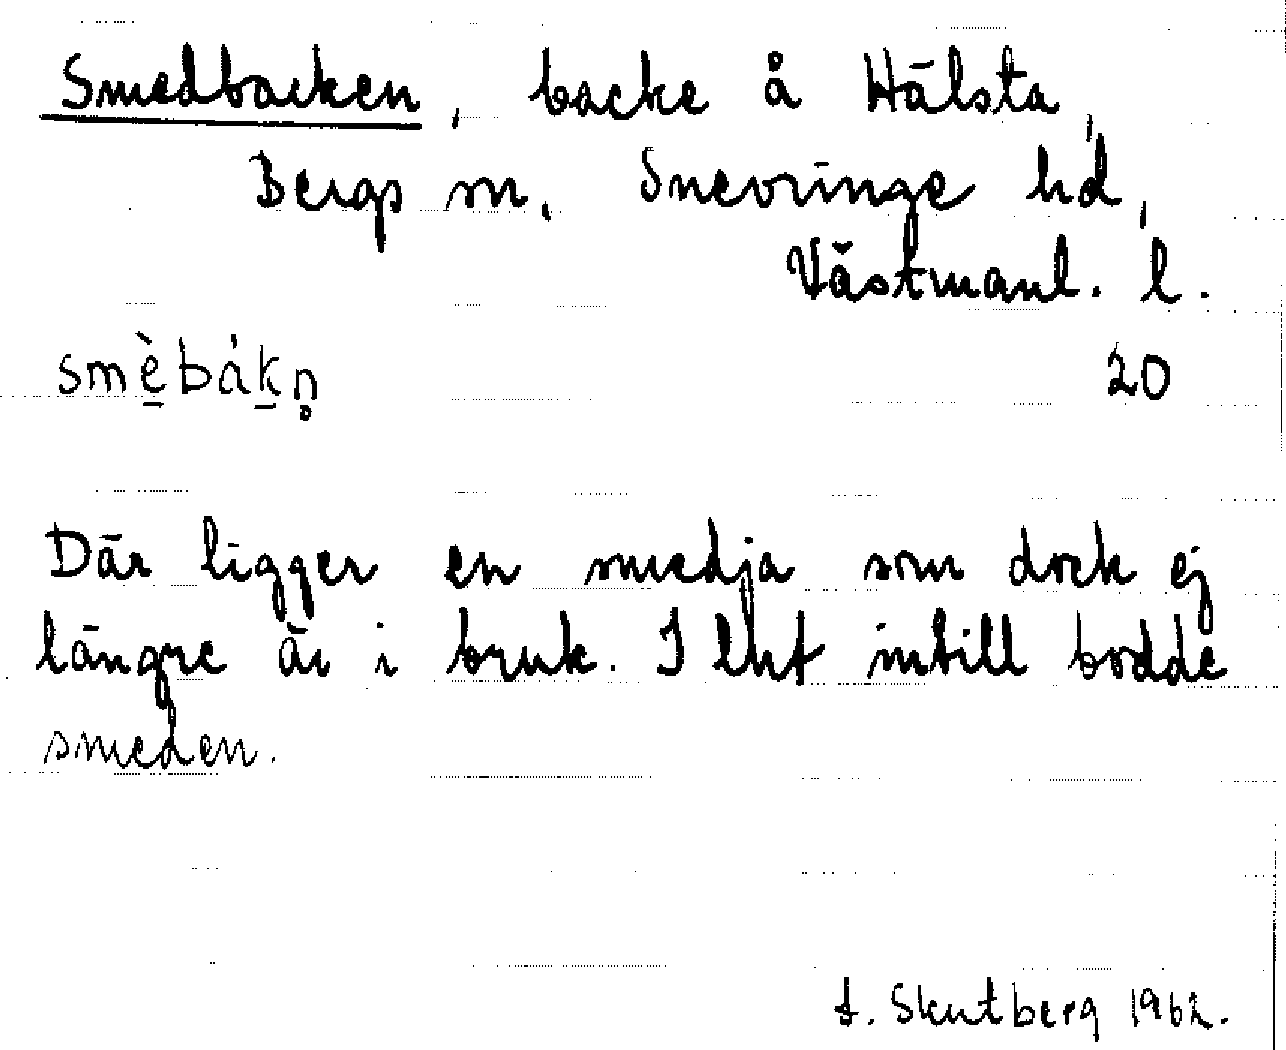 Smedbacken, backe å Hälsta,
Bergs sn, Snevringe hd,
Västmanl. l.
smè̱báḵn̥ 20
Där ligger en smedja som dock ej
längre är i bruk. I lht intill bodde
smeden.
A. Skutberg 1962.